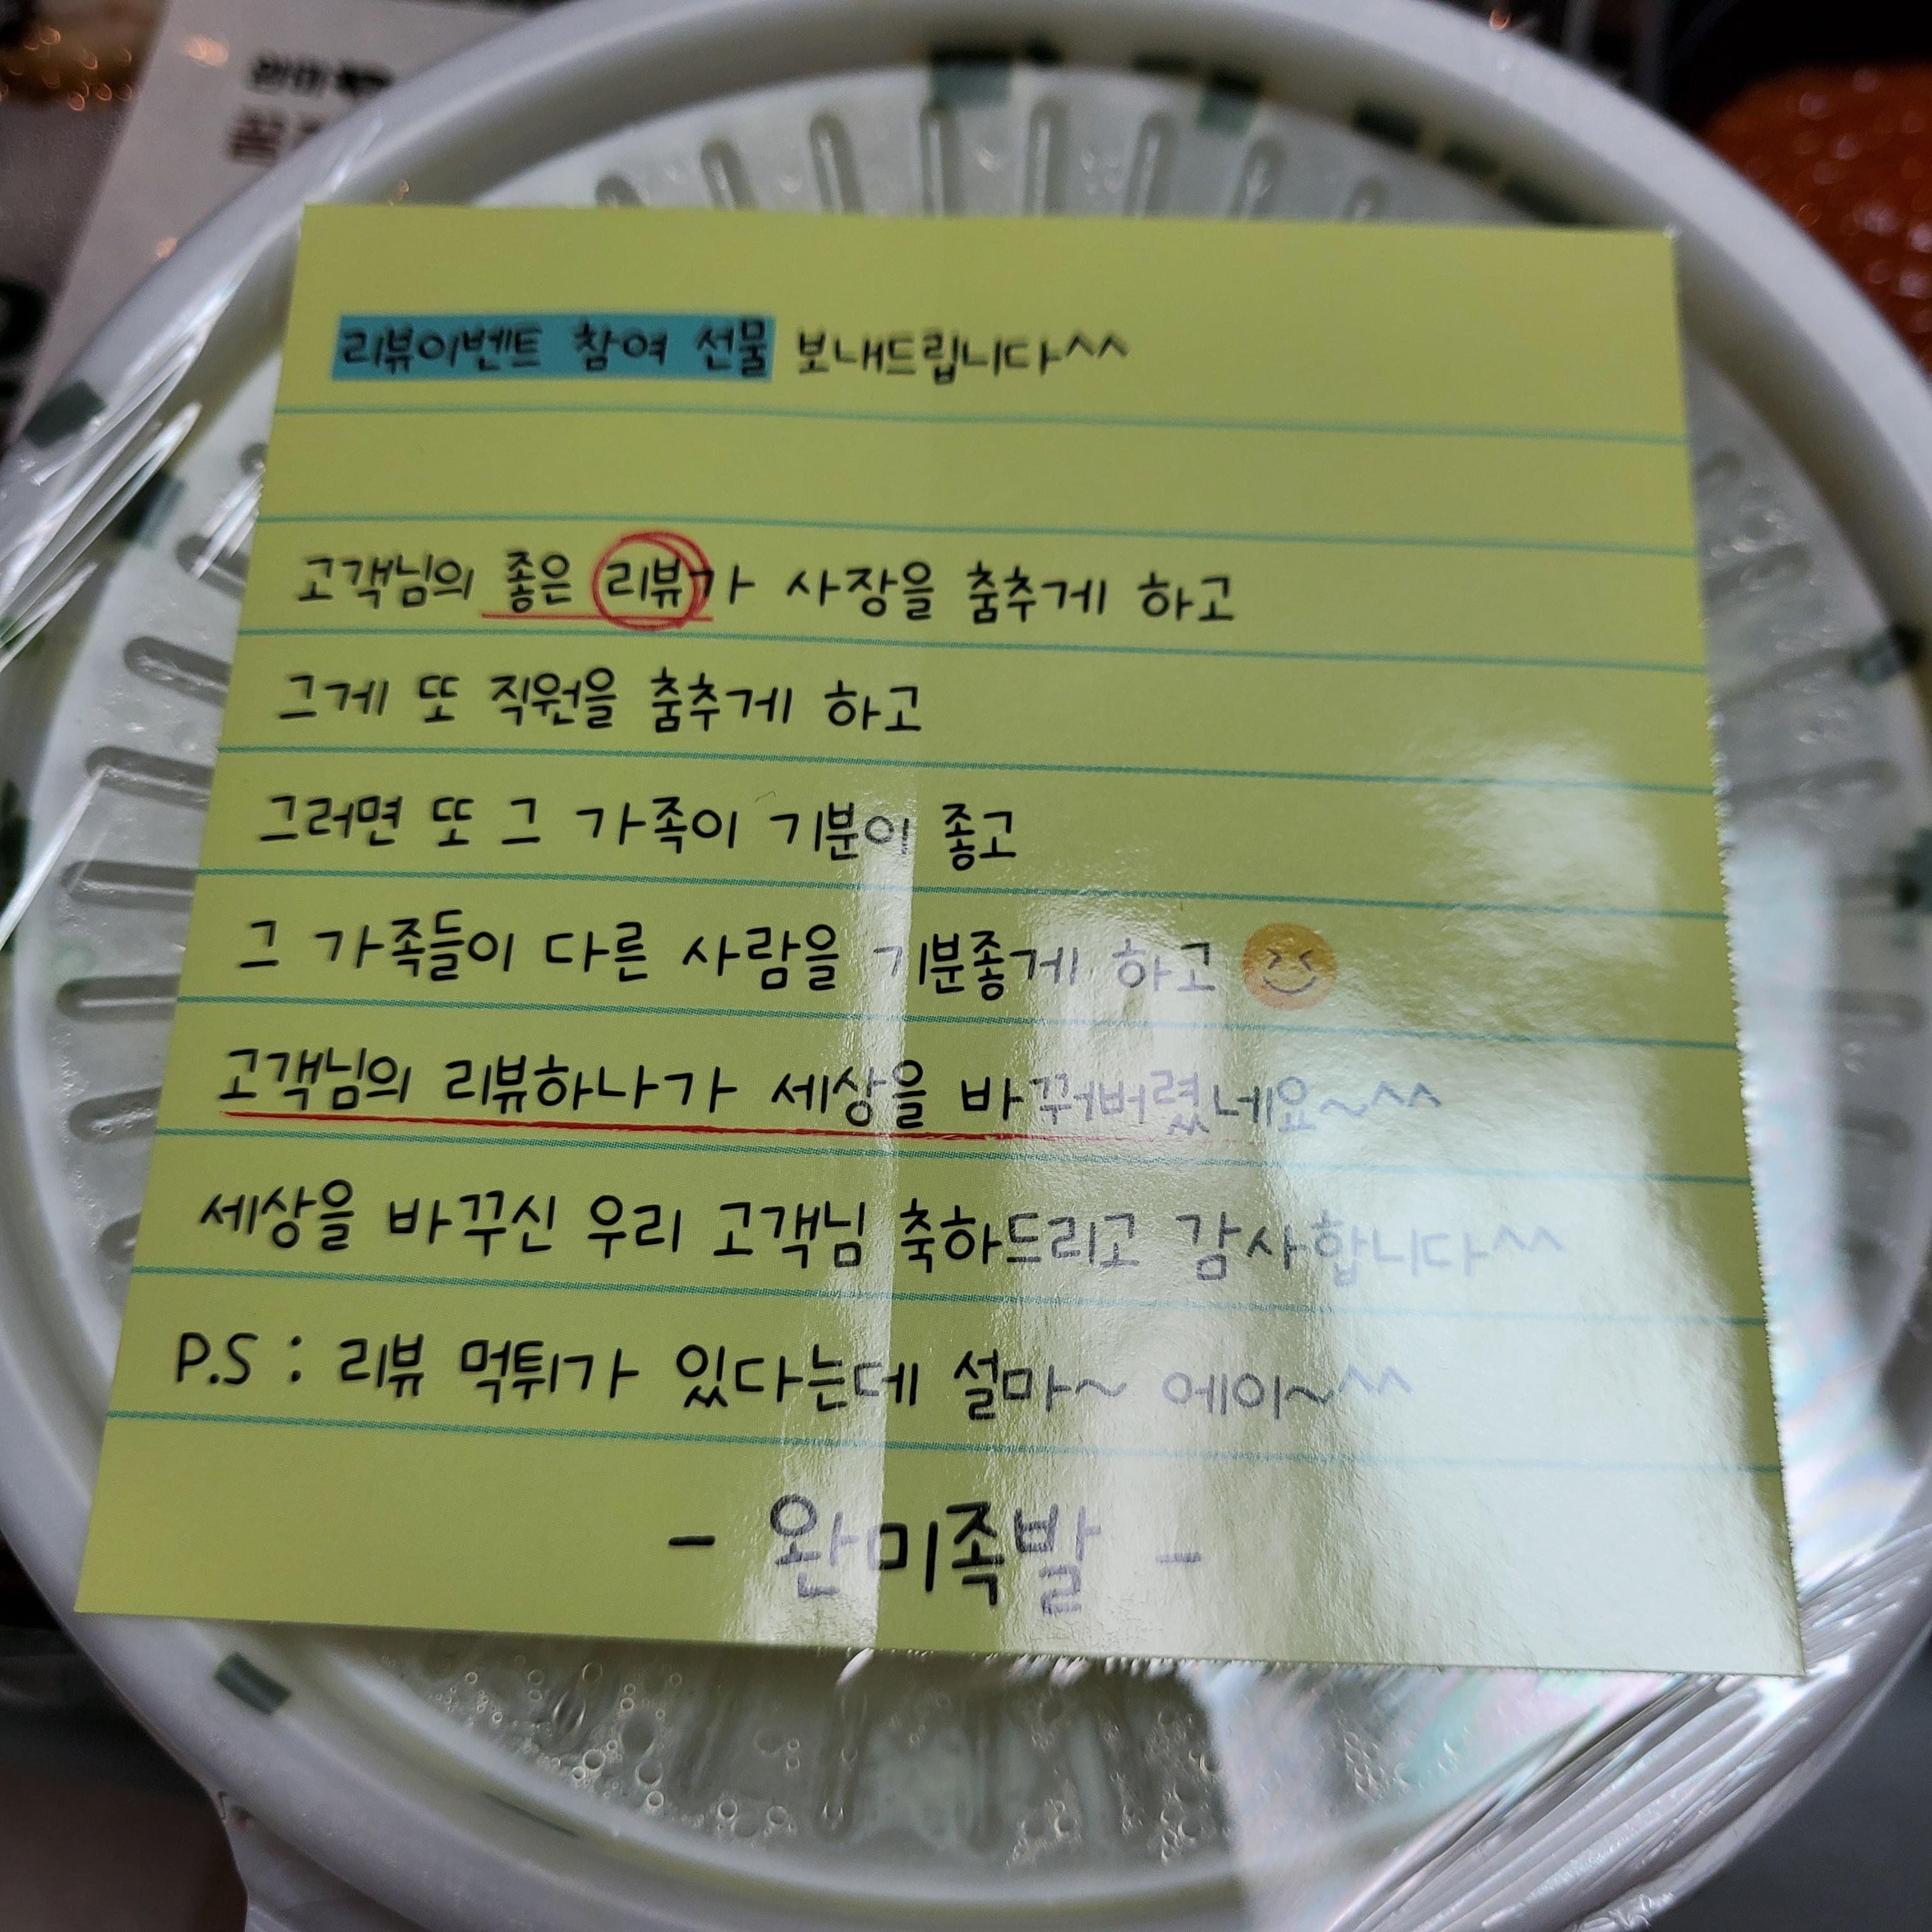 리뷰이벤트 참여 선물 보내드립니다^^
고객님의 좋은 리뷰가 사장을 춤추게 하고
그게 또 직원을 춤추게 하고
그러면 또 그 가족이 기분이 좋고
그 가족들이 다른 사람을 기분좋게 하고
고객님의 리뷰하나가 세상을 바꿔버렸네요~^^
세상을 바꾸신 우리 고객님 축하드리고 감사합니다^^
P.S : 리뷰 먹튀가 있다는데 설마~ 에이~^^
- 완미족발 -